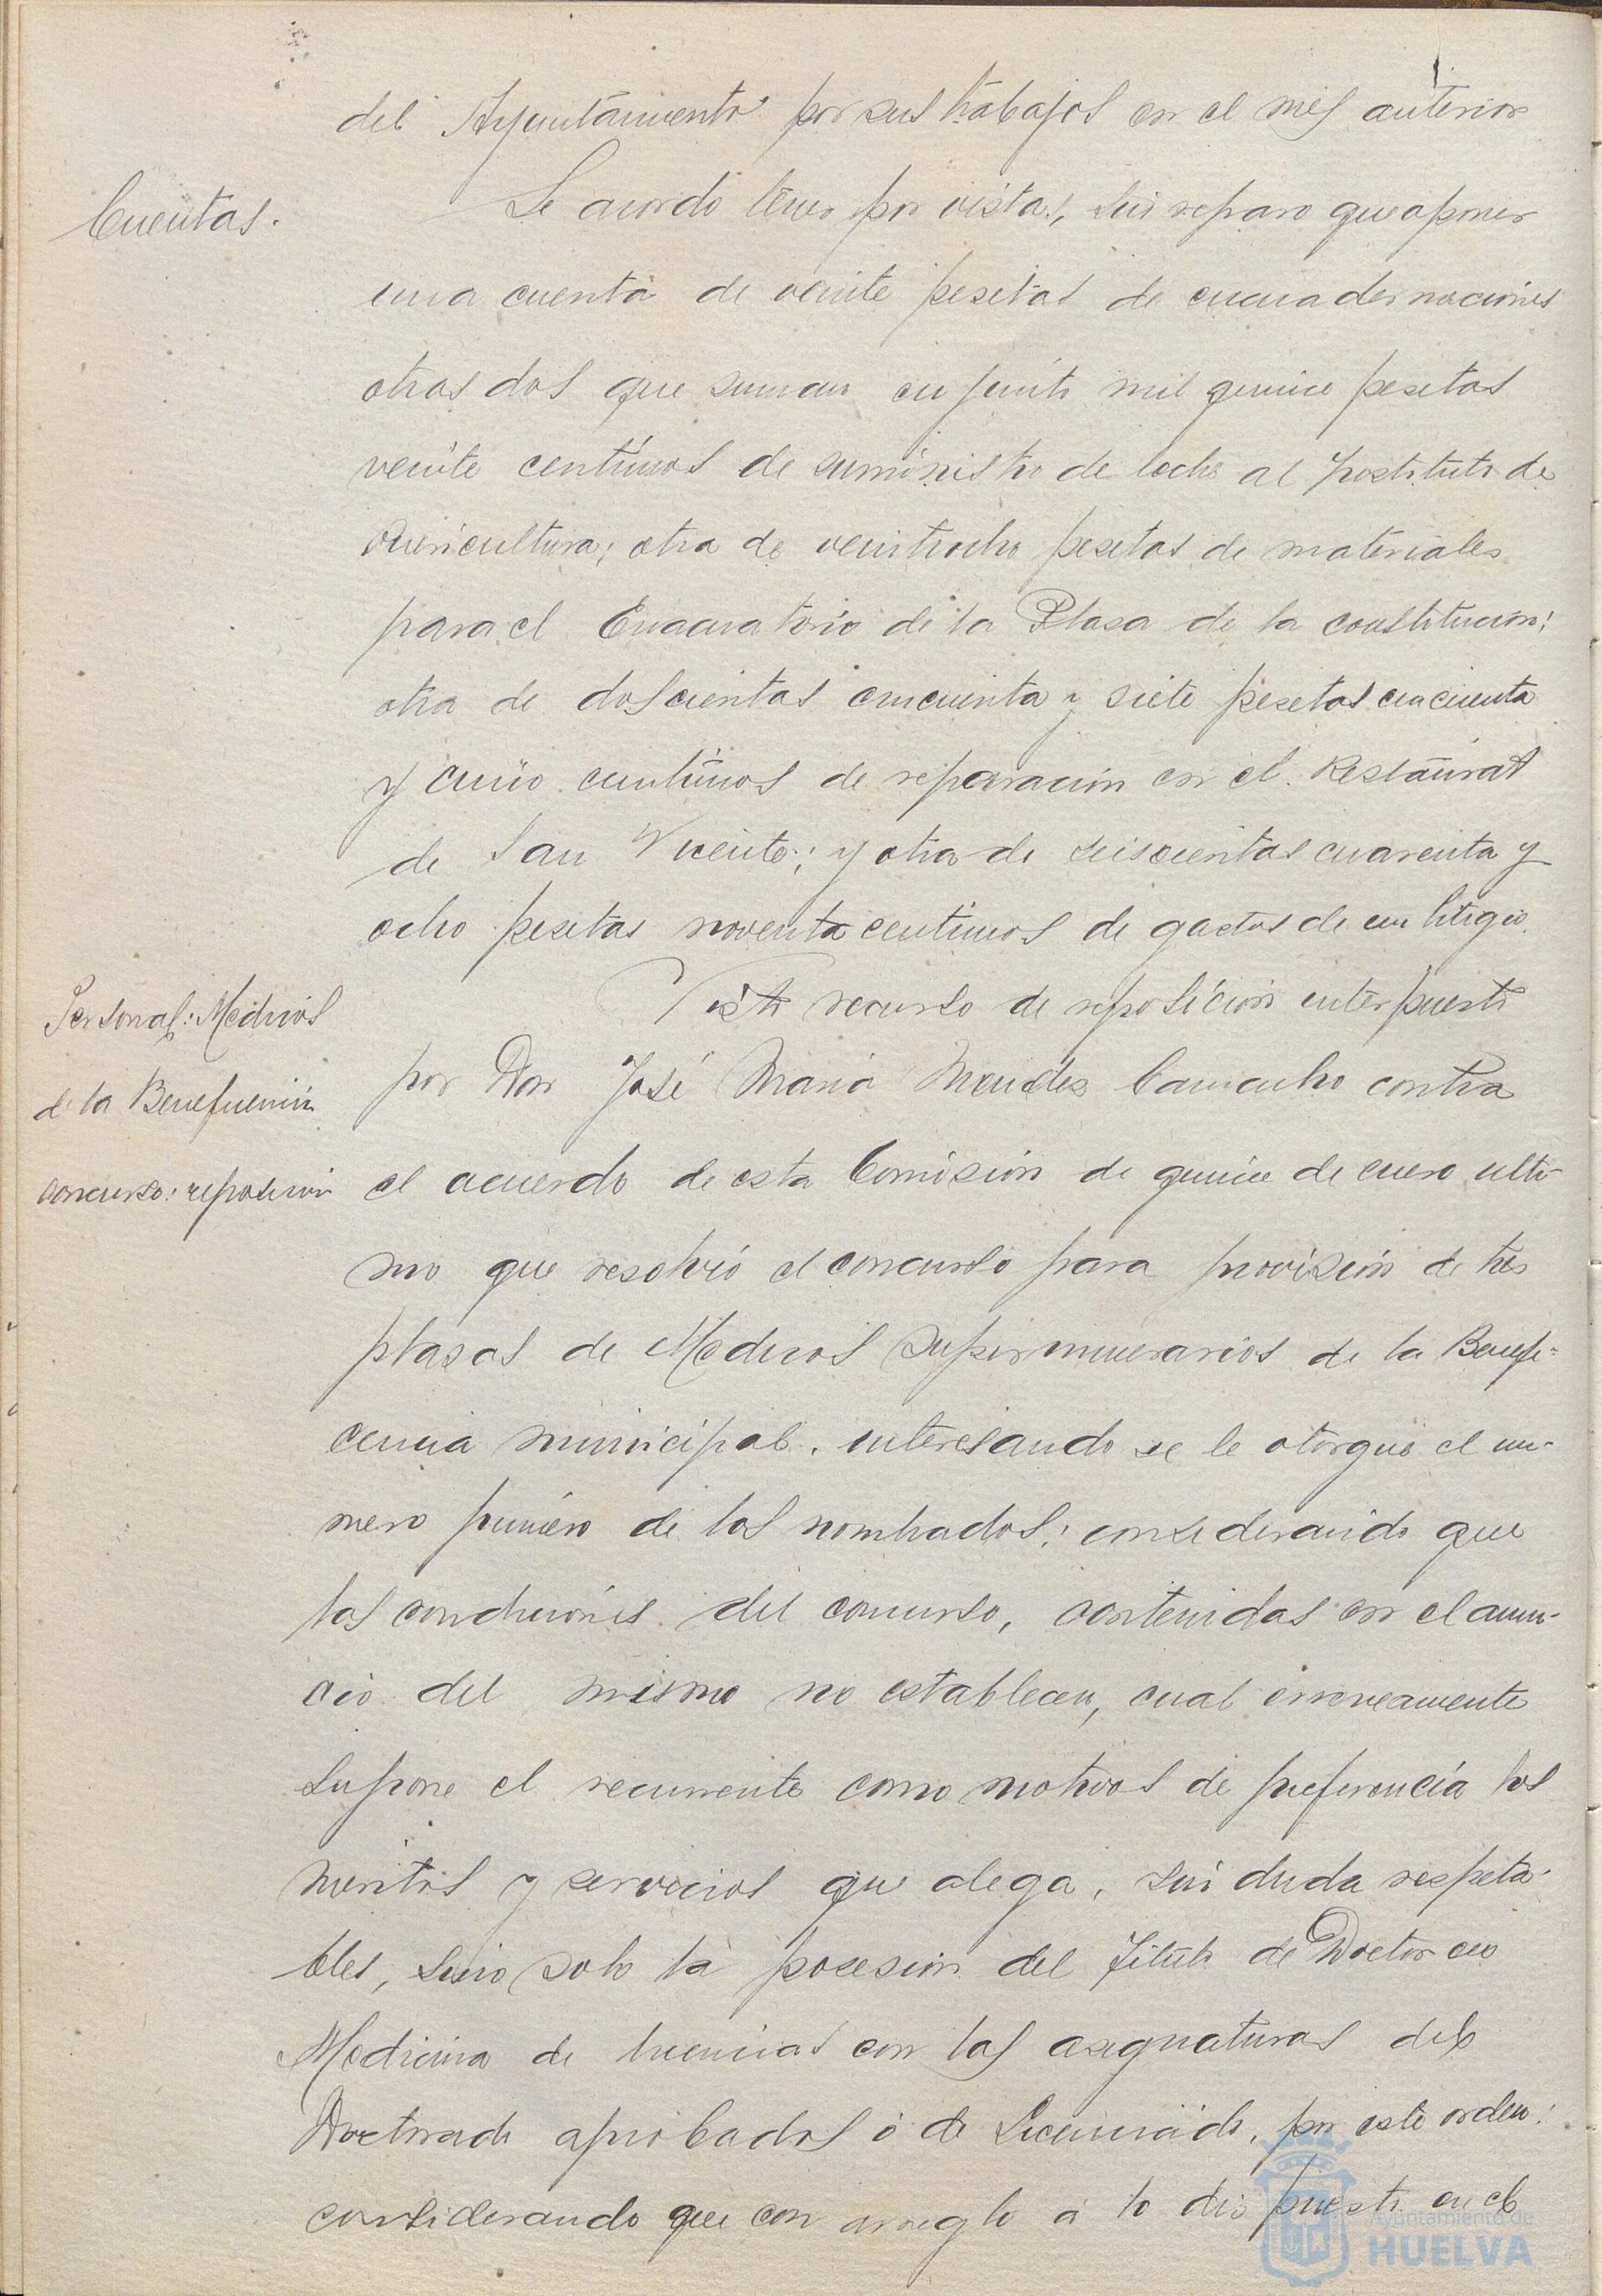 del Ayuntamiento por sus trabajos en el mes anterior
Cuentas.
Se acordó tener por vistas, sin reparo que oponer
una cuenta de veinte pesetas de encuadernaciones
otras dos que suman en junto mil quince pesetas
veinte centimos de suministro de leche al Instituto de
Puericultura; otra de veintiocho pesetas de materiales
para el Evacuatorio de la Plaza de la constitución;
otra de doscientas cincuenta y siete pesetas cincuenta
y cinco centimos de reparación en el Restaurat
de San Vicente; y otra de seiscientas cuarenta y
ocho pesetas noventa centimos de gastos de un litigio.
Personal: Medicos
de la Beneficencia
concurso: reposicion
Visto recurso de reposición interpuesto
por Don José Maria Mendez Camacho contra
el acuerdo de esta Comisión de quince de enero ulti-
mo que resolvió el concurso para provisión de tres
plazas de Medicos supernumerarios de la Benefi-
cencia municipal, interesando se le otorgue el nu-
mero primero de los nombrados; considerando que
las condiciones del concurso, contenidas en el anun-
cio del mismo no establecen, cual erroneamente
supone el recurrente como motivos de preferencia los
meritos y servicios que alega, sin duda respeta-
bles, sino solo la posesion del Titulo de Doctor en
Medicina de licencias con las asignaturas del
Doctorado aprobadas ó de Licenciado, por este orden:
considerando que con arreglo á lo dispuesto en el
Ayuntamiento de
HUELVA